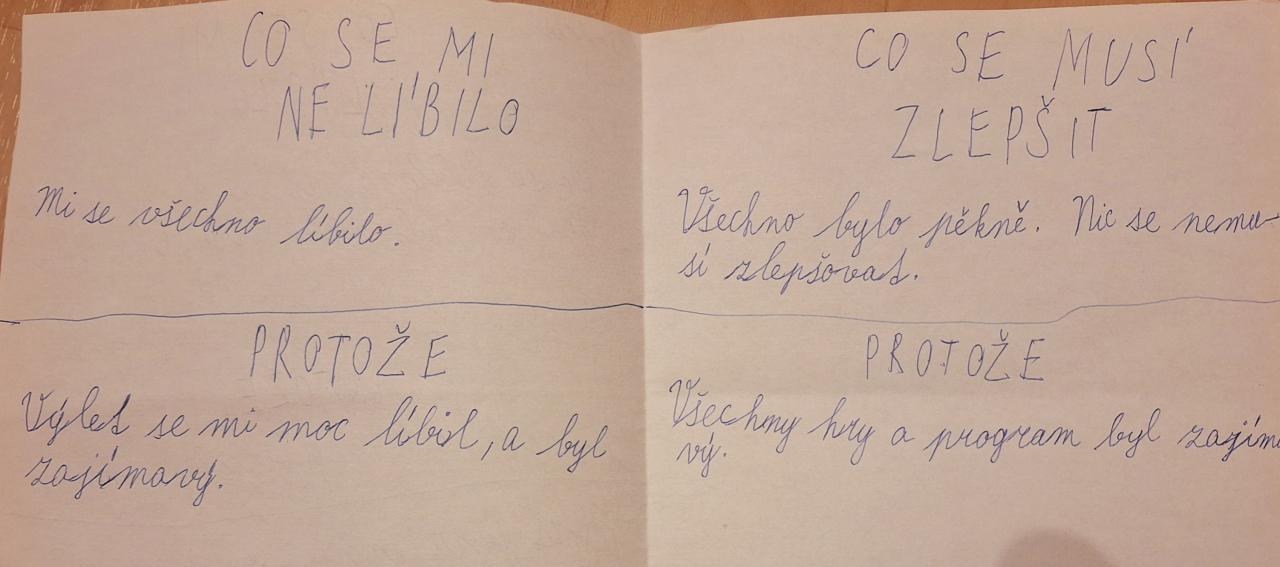 CO SE MI
NE LÍBILO
Mi se všechno líbilo.
PROTOŽE
Výlet se mi moc líbil, a byl
zajímavý.
CO SE MUSÍ
ZLEPŠIT
Všechno bylo pěkně. Nic se nemu-
sí zlepšovat.
PROTOŽE
Všechny hry a program byl zajím
vý.